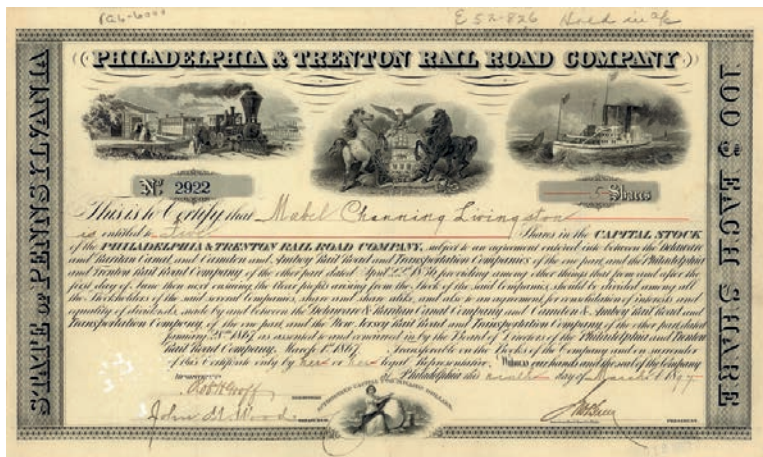 E 52-826 Hold in a/c
PHILADELPHIA & TRENTON RAIL ROAD COMPANY
STATE OF PENNSYLVANIA
100 $ EACH SHARE
No. 2922
5 Shares
This is to Certify, that Mabel Channing Livingston
is entitled to Five Shares in the CAPITAL STOCK
of the PHILADELPHIA & TRENTON RAIL ROAD COMPANY, subject to an agreement entered into between the Delaware
and Raritan Canal, and Camden and Amboy Rail Road and Transportation Companies of the one part, and the Philadelphia
and Trenton Rail Road Company of the other part dated April 22d 1836 providing among other things that from and after the
first day of June then next ensuing, the clear profits arising from the Stock of the said Companies, should be divided among all
the Stockholders of the said several Companies, share and share alike, and also to an agreement for consolidation of interests and
equality of dividends, made by and between the Delaware & Raritan Canal Company and Camden & Amboy Rail Road and
Transportation Company, of the one part, and the New Jersey Rail Road and Transportation Company, of the other part, dated
January 28th 1867 as assented to and concurred in by the Board of Directors of the Philadelphia and Trenton
Rail Road Company, March 1st 1867. Transferable on the Books of the Company and on surrender
of this Certificate only by her or her legal Representative. Witness our hands and the seal of the Company
at Philadelphia this day of March 1897
John M. Wood
PRESIDENT.